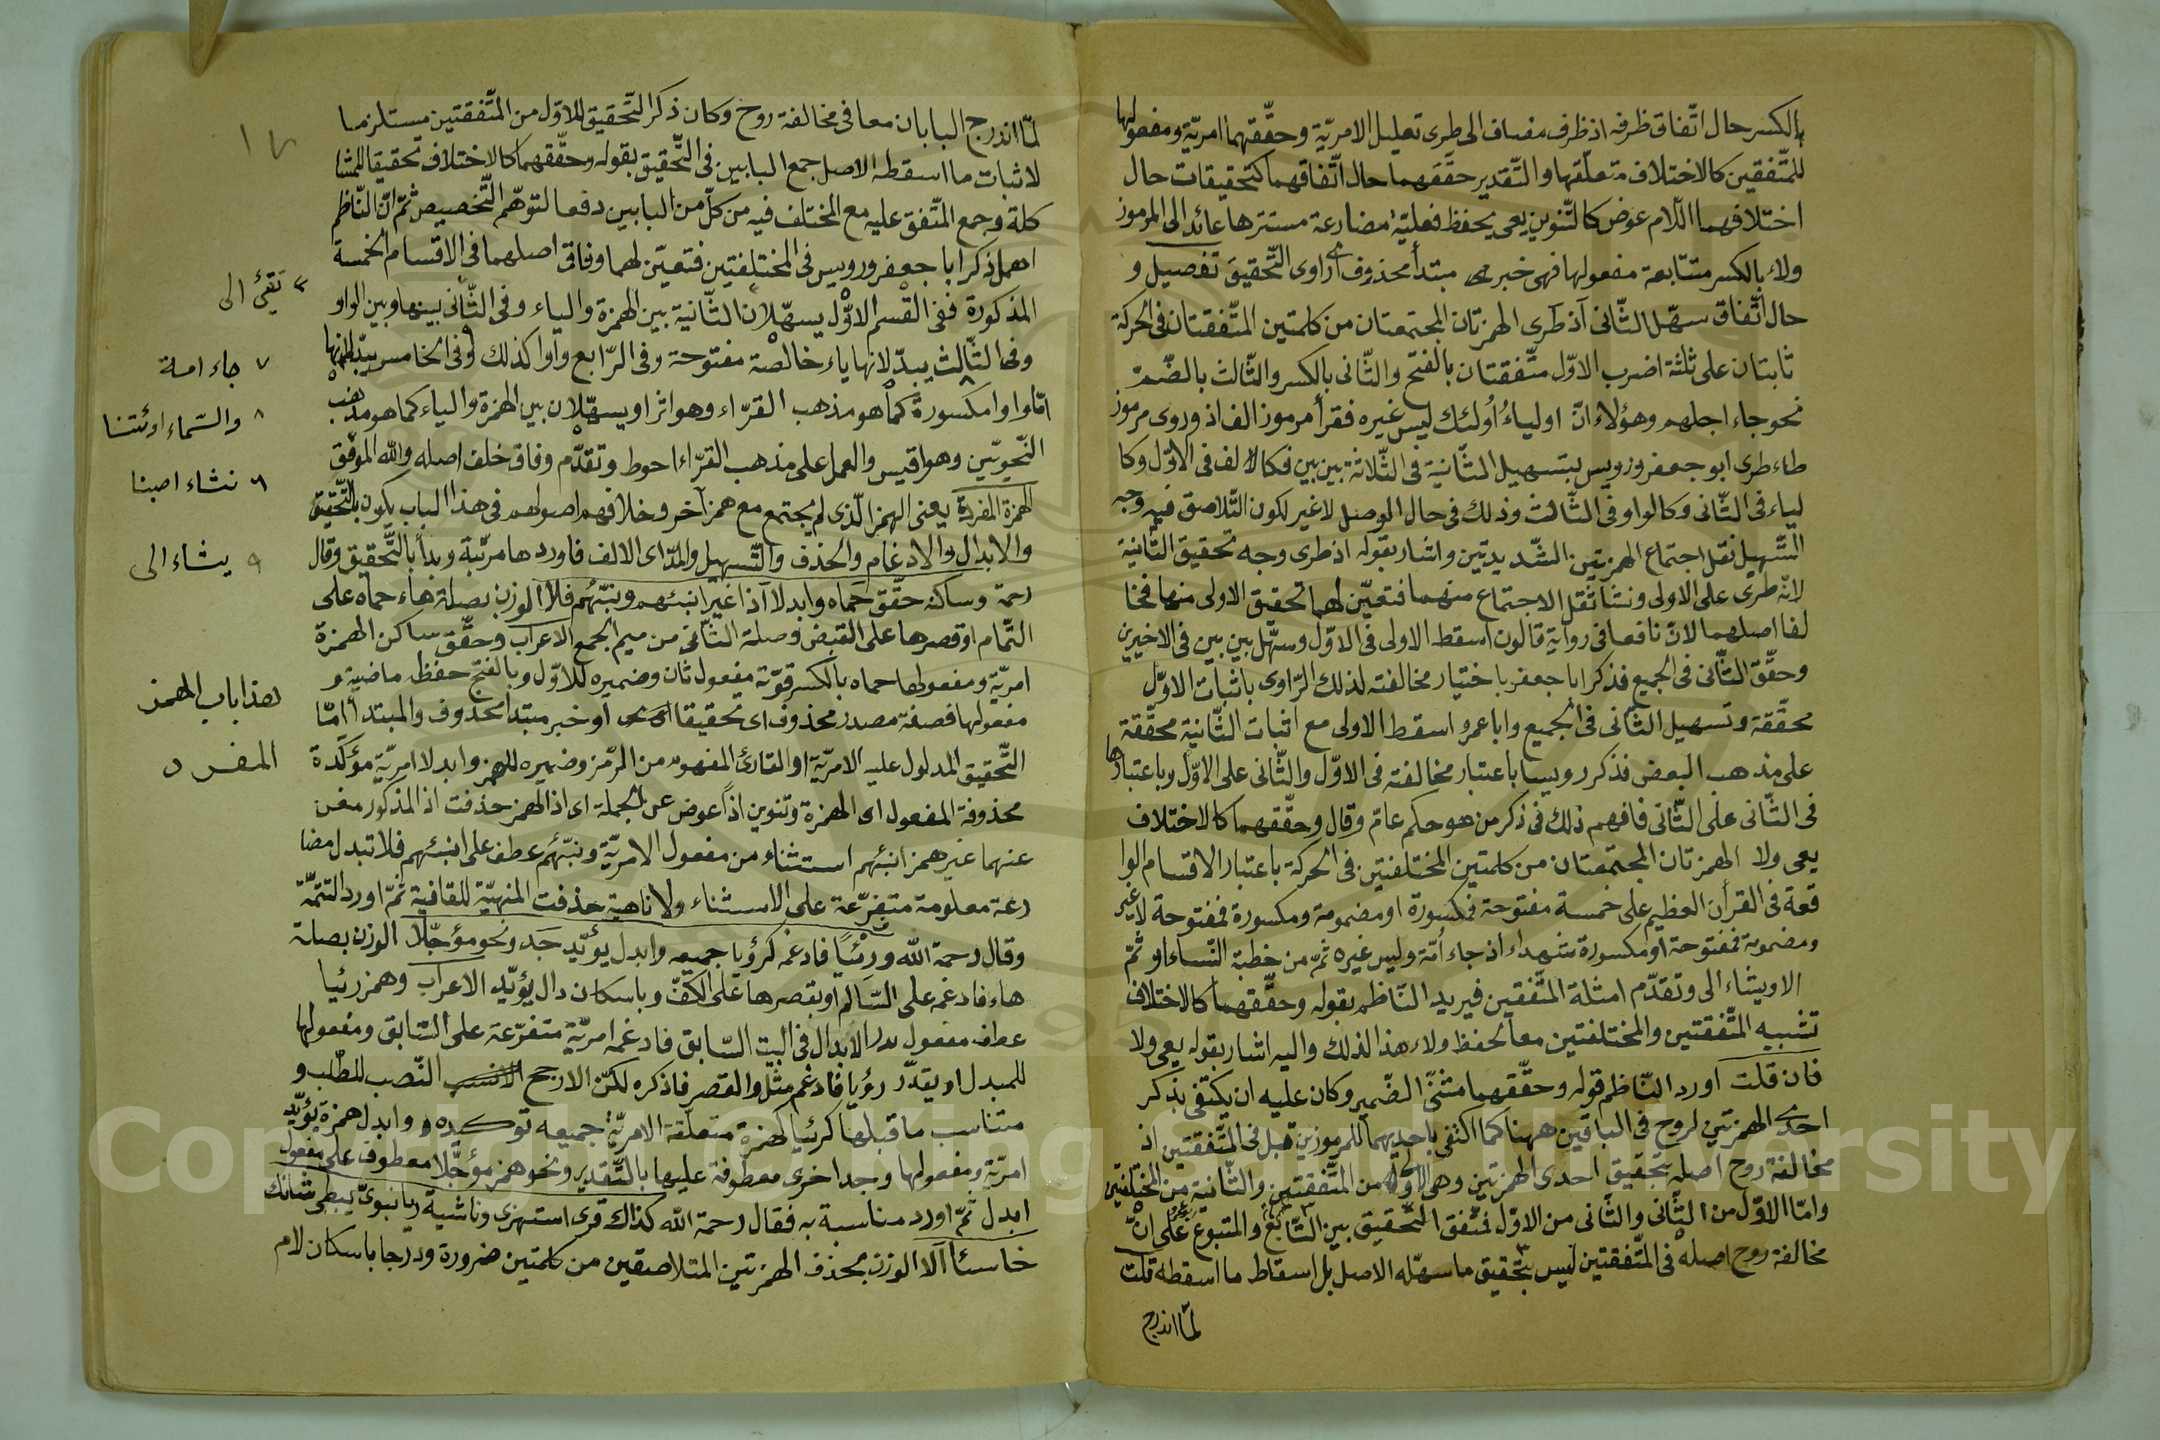 بالكسر حال اتّفاق ظرفه اذ ظرف مضاف الى طرى تعليل الامريّة وحقّقهما امريّة ومفعولها
للمتّفقين كالاختلاف متعلّقها والتّقدير حقّقهما حال اتّفاقهما كتحقيقات حال
اختلافهما اللّام عوض كالتّنوين يعى يحفظ فعليّة مضارعة مستترها عائد الى المرموز
ولاء بالكسر متتابعة مفعولها فهى خبر مبتدأ محذوف اى راوى التّحقيق تفصيل و
حال اتّفاق سهّل الثّانى اذ طرى الهمزتان المجتمعتان من كلمتين المتّفقتان فى الحركة
ثابتان على ثلثة اضرب الاوّل متّفقتان بالفتح والثّانى بالكسر والثّالث بالضّمّ
نحو جاء اجلهم وهؤلاء انّ اولياءُ اُولئك ليس غيره فقرأ مرموز الف اذ وروى مرموز
طاء طرى ابو جعفر ورويس بتسهيل الثّانية فى الثّلاثة بين بين فكالالف فى الاوّل وكا
لياء فى الثّانى وكالواو فى الثّالث وذلك فى حال الوصل لا غير لكون التّلاصق فيه وجه
التّسهيل ثقل اجتماع الهمزتين الشّديدتين واشار بقوله اذ طرى وجه تحقيق الثّانية
لانّه طرى على الاولى ونشأ ثقل الاجتماع منهما فتعيّن لهما تحقيق الاولى منها فخا
لفا اصلهما لانّ نافعا فى رواية قالون اسقط الاولى فى الاوّل وسهّل بين بين فى الاخيرين
وحقّق الثّانى فى الجميع فذكر ابا جعفر باختيار مخالفته لذلك الرّاوى باثبات الاوّل
محقّقة وتسهيل الثّانى فى الجميع وابا عمرو اسقط الاولى مع اثبات الثّانية محقّقة
على مذهب البعض فذكر رويسا باعتبار مخالفة فى الاوّل والثّانى على الاوّل وباعتبارها
فى الثّانى على الثّانى فافهم ذلك فى ذكر من هو حكم عامّ وقال وحقّقهما كالاختلاف
يعى ولا الهمزتان المجتمعتان من كلمتين المختلفتين فى الحركة باعتبار الاقسام الوا
قعة فى القرأن العظيم على خمسة مفتوحة فمكسورة او مضمومة ومكسورة فمفتوحة لا غير
ومضمومة فمفتوحة او مكسورة شهداء اذ جاء اُمّة وليس غيره ثمّ من خطبة النّساء او ثمّ
الاويشاء الى وتقدّم امثلة المتّفقين فيريد النّاظم بقوله وحقّقهما كالاختلاف
تشبيه المتّفقتين والمختلفتين معا لحفظ ولاء هذا لذلك واليه اشار بقوله يعى ولا
فان قلت اورد النّاظم قوله وحقّقهما مثنّى الضّمير وكان عليه ان يكتفى بذكر
احدى الهمزتين لروح فى الباقين ههنا كما اكتفى باحديهما للمرموزين قبل فى المتّفقتين اذ
مخالفة روح اصله بتحقيق احدى الهمزتين وهى الاولى من المتّفقتين والثّانية من المختلفتين
وامّا الاوّل من الثّانى والثّانى من الاوّل فمتّفق التّحقيق بين التّابع والمتبوع على انّ
مخالفة روح اصله فى المتّفقتين ليس بتحقيق ما سهّله الاصل بل اسقاط ما اسقطه قلت
لمّا اندرج
لمّا اندرج البابان معا فى مخالفة روح وكان ذكر التّحقيق للاوّل من المتّفقتين مستلزما
لاثبات ما اسقطه الاصل جمع البابين فى التّحقيق بقوله وحقّقهما كالاختلاف تحقيقا للمشا
كلة وجمع المتّفق عليه مع المختلف فيه من كلّ من البابين دفعا لتوهّم التّخصيص ثمّ انّ النّاظم
اهمل ذكر ابا جعفر ورويس فى المختلفتين فتعيّن لهما وفاق اصلهما فى الاقسام الخمسة
المذكورة ففى القسم الاوّل يسهّلان الثّانية بين الهمزة والياء وفى الثّانى بينها وبين الواو
وفى الثّالث يبدّلانها ياء خالصة مفتوحة وفى الرّابع واوا كذلك وفى الخامس يبدّلانها
امّا واوا مكسورة كما هو مذهب القرّاء وهو اثر او يسهّلان بين الهمزة والياء كما هو مذهب
النّحويّين وهو اقيس والعمل على مذهب القرّاء احوط وتقدّم وفاق خلف اصله والله الموفّق
الهمزة المفردة يعنى الهمز الّذى لم يجتمع مع همز آخر وخلافهم اصولهم فى هذا الباب يكون بالتّحقيق
والابدال والادغام والحذف والتّسهيل والمدّ اى الالف فاوردها مرتّبة وبدأ بالتّحقيق وقال
رحمة وساكنه حقّق حماه وابدلا اذا غير انبئهم ونبّئهم فلا الوزن بصلة هاء حماه على
التّمام او قصرها على القبض وصلة الثّانى من ميم الجمع الاعراب وحقّق ساكن الهمزة
امريّة ومفعولها حماه بالكسر قوّته مفعول ثان وضميره للاوّل وبالفتح حفظ ماضية و
مفعولها فصفة مصدر محذوف اى تحقيقا او خبر مبتدا محذوف والمبتدا امّا
التّحقيق المدلول عليه الامريّة او القارئ المفهوم من الرّمز وضميره للهمز وابدلا امريّة مؤكّدة
محذوفة المفعول اى الهمزة وتنوين اذاً عوض عن الجملة اى اذ الهمز حذفت اذ المذكور مغن
عنهما غير همز انبئهم استثناء من مفعول الامريّة ونبّئهم عطف على انبئهم فلا تبدل مضا
رعة معلومة متفرّعة على الاستثناء ولا ناهية حذفت المنهيّة للقافية ثمّ اورد التتمّة
وقال رحمة الله ورئيًا فادغمه كرؤيا جميعه وابدل يؤيّد جَد ونحو مؤجّلا الوزن بصلة
هاء فادغمه على السّالم او بقصرها على الكفّ وباسكان دال يؤيّد الاعراب وهمز رئيا
عطف مفعول الابدال فى البيت السّابق فادغمه امريّة متفرّعة على السّابق ومفعولها
للمبدل او يقدّر رؤيا فادغم مثل والقصر فاذكره لكنّ الارجح النّصب للطّلب و
متناسب ما قبلها كرئيا كهمزة متعلّقة الامريّة جميعه توكيده وابدل همزة يؤيّد
امريّة ومفعولها وجد اخرى معطوفة عليها بالتّقدير ونحو همز مؤجّلا معطوف على مفعول
ابدل ثمّ اورد مناسبة به فقال رحمة الله كذاك قرى استهزى وناشية ريا نبوّى يبطى شانك
خاسئا آلا الوزن بحذف الهمزتين المتلاصقين من كلمتين ضرورة ودرجا باسكان لام
تفئ الى
٧ جاء امة
٨ والسّماء اوئتنا
٦ نشاء اصبنا
٩ يشاء الى
هذا باب الهمز
المفرد
Copyright © King Saud University